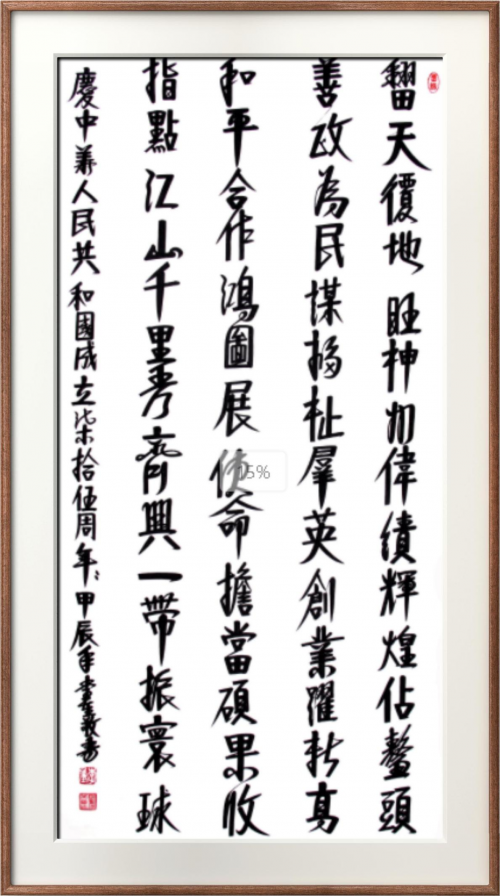 翻天覆地旺神州偉績輝煌佔鰲頭
善政為民謀福祉羣英創業躍新高
和平合作鴻圖展使命擔當碩果收
指點江山千里秀齊興一帶振寰球
慶中華人民共和國成立柒拾伍周年甲辰年李書
15%